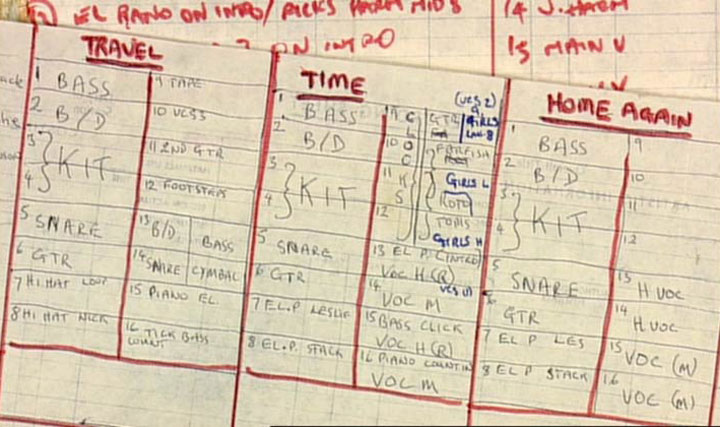 EL PIANO ON INTRO/ PICKS HARM MIDS
ON INTRO
14 V. HARM
15 MAIN V
TRAVEL
1 BASS
2 B/D
3 } KIT
4
5 SNARE
6 GTR
7 HI HAT LOOP
8 HI HAT NICK
9 TAPE
10 VCS3
11 2ND GTR
12 FOOTSTEPS
13 B/D BASS
14 SNARE CYMBAL
15 PIANO EL.
16 TICK BASS
COUNT
TIME
1 BASS
2 B/D
3 } KIT
4
5 SNARE
6 GTR
7 EL.P LESLIE
8 EL.P. STACK
(VCS 2)
9 C GTR GIRLS
L
10 O FARFISA
C
11 K GIRLS L
S ROTO
12 TOMS
GIRLS H
13 EL P. (INTRO)
VOC H (R)
14 VCS (1)
VOC M
15 BASS CLICK
VOC H (R)
16 PIANO COUNT IN
VOC M
HOME AGAIN
1 BASS
2 B/D
3 } KIT
4
5 SNARE
6 GTR
7 EL P LES
8 EL P STACK
9
10
11
12
13 H VOC
14 H VOC
15 VOC (M)
16 VOC (M)